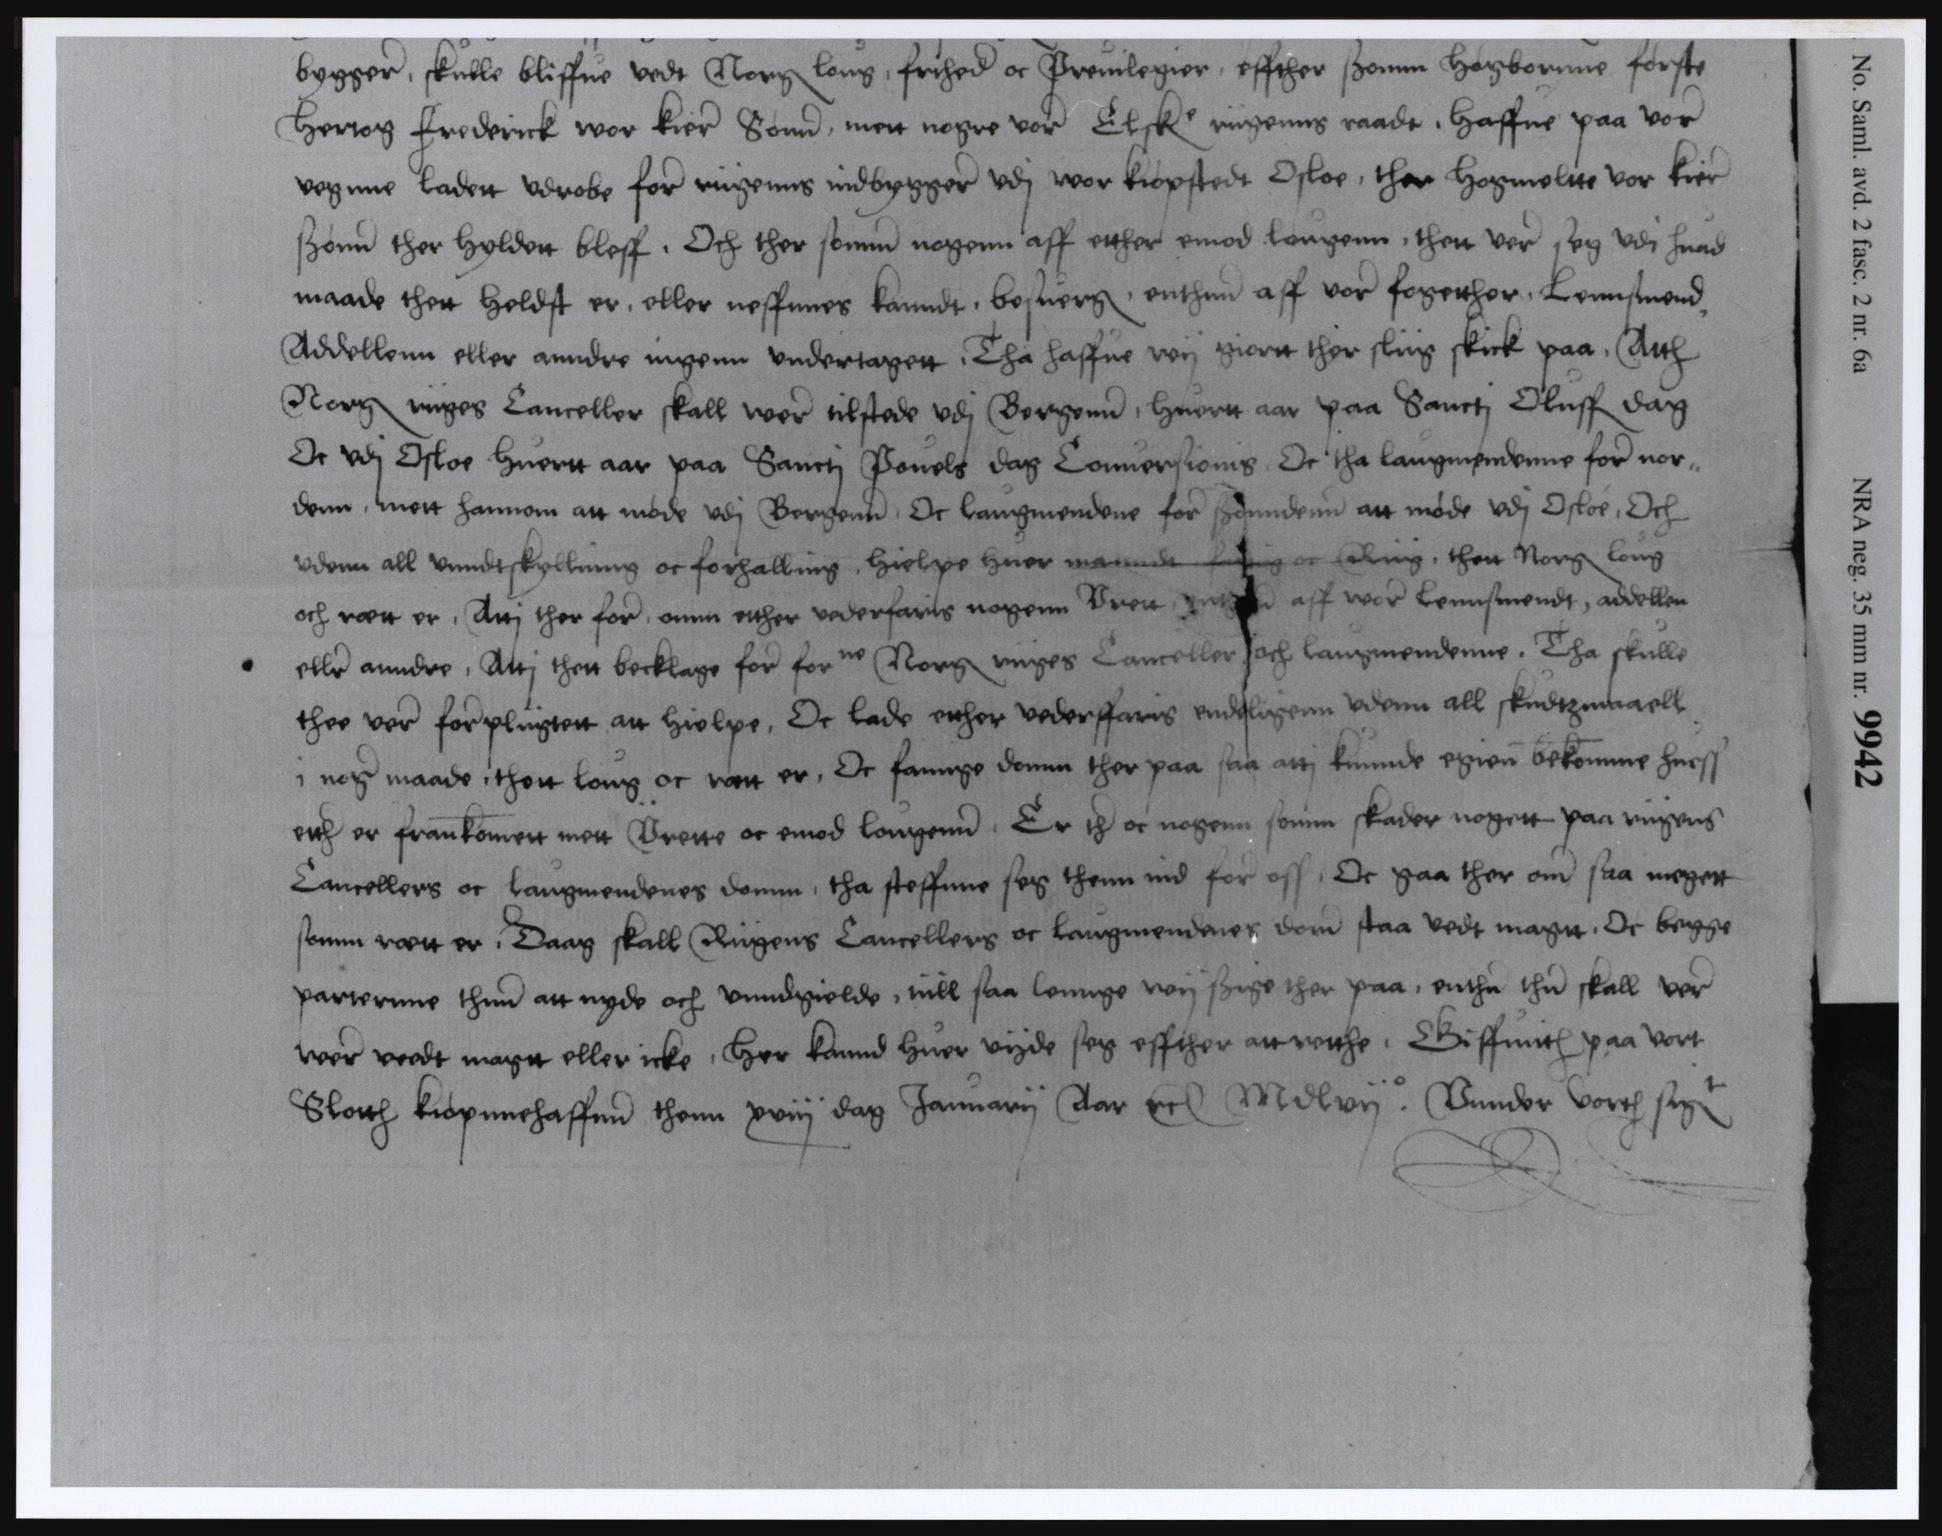 bygger, skulle bliffue vedt Norg loug, frihed oc Preuilegier, effther szomm høgbornne første
Hertog Frederick wor kier Sønn, mett nogre vor Elske riigenns raadt, haffue paa vor
vegnne ladett vdrobe for riigenns indbygger vdj wor kiøpstedt Osloe, ther høgmeltte vor kier
szønn ther hyldett bleff. Och ther somm nogenn aff etther emod lougenn, thett ver seg vdi huad
maade thett heldst er, eller neffnnes kanndt, besuerg, enthnn aff vor fogetther, Lennsmend,
Addellenn eller anndre ingenn vndertagett, Tha haffue wij giortt ther sliig skick paa, Atth
Norg riiges Canceller skall wer tilstede vdj Bergenn, huertt aar paa Sanctj Oluff dag
Oc vdj Osloe huertt aar paa Sanctj Pouels dag Conuersionis, Oc tha laugmendenne for nor„
denn, mett hannom att møde vdj Bergenn, Oc laugmendene for szønndenn att møde vdj Osloe, Och
vdenn all vnndtskyllning oc forhalling, hielpe huer manndt fattig oc Riig, thett Norg loug
och rett er, Atj ther for, omm etther vederfaris nogenn Vrett, enthenn aff wor Lennsmendt, addellen
eller anndre, Attj thett becklage for forne Norg riiges Canceller och laugmendenne. Tha skulle
thee ver forpliigtett att hielpe, Oc lade etther vederffaris endeligenn vdenn all skudtzmaaell
i nogr maade, thett loug oc rett er, Oc fannge domm ther paa saa attj kunnde egien bekomme huess
etth er frankomett mett Vrette oc emod lougenn, Er th oc nogenn somm skader nogett paa riigens
Cancellers oc laugmendenes domm, tha steffnne seg thenn ind for oss, Oc gaa ther om saa megett
somm rett er, Daag skall Riigens Cancellers oc laugmendenes dom staa vedt magtt, Oc begge
parternne thnn att nyde och vnndgielde, till saa lennge wij szige ther paa, enthn thn skall ver
wer veedt magtt eller icke, Her kannd huer viide seg effther att retthe. Giffuith paa vort
Slotth kiøpnnehaffnn thenn xviij dag Januarij Aar rc MDlvijo. Vnnder vorth sigt
No. Saml. avd. 2 fasc. 2 nr. 6a NRA neg. 35 mm nr. 9942